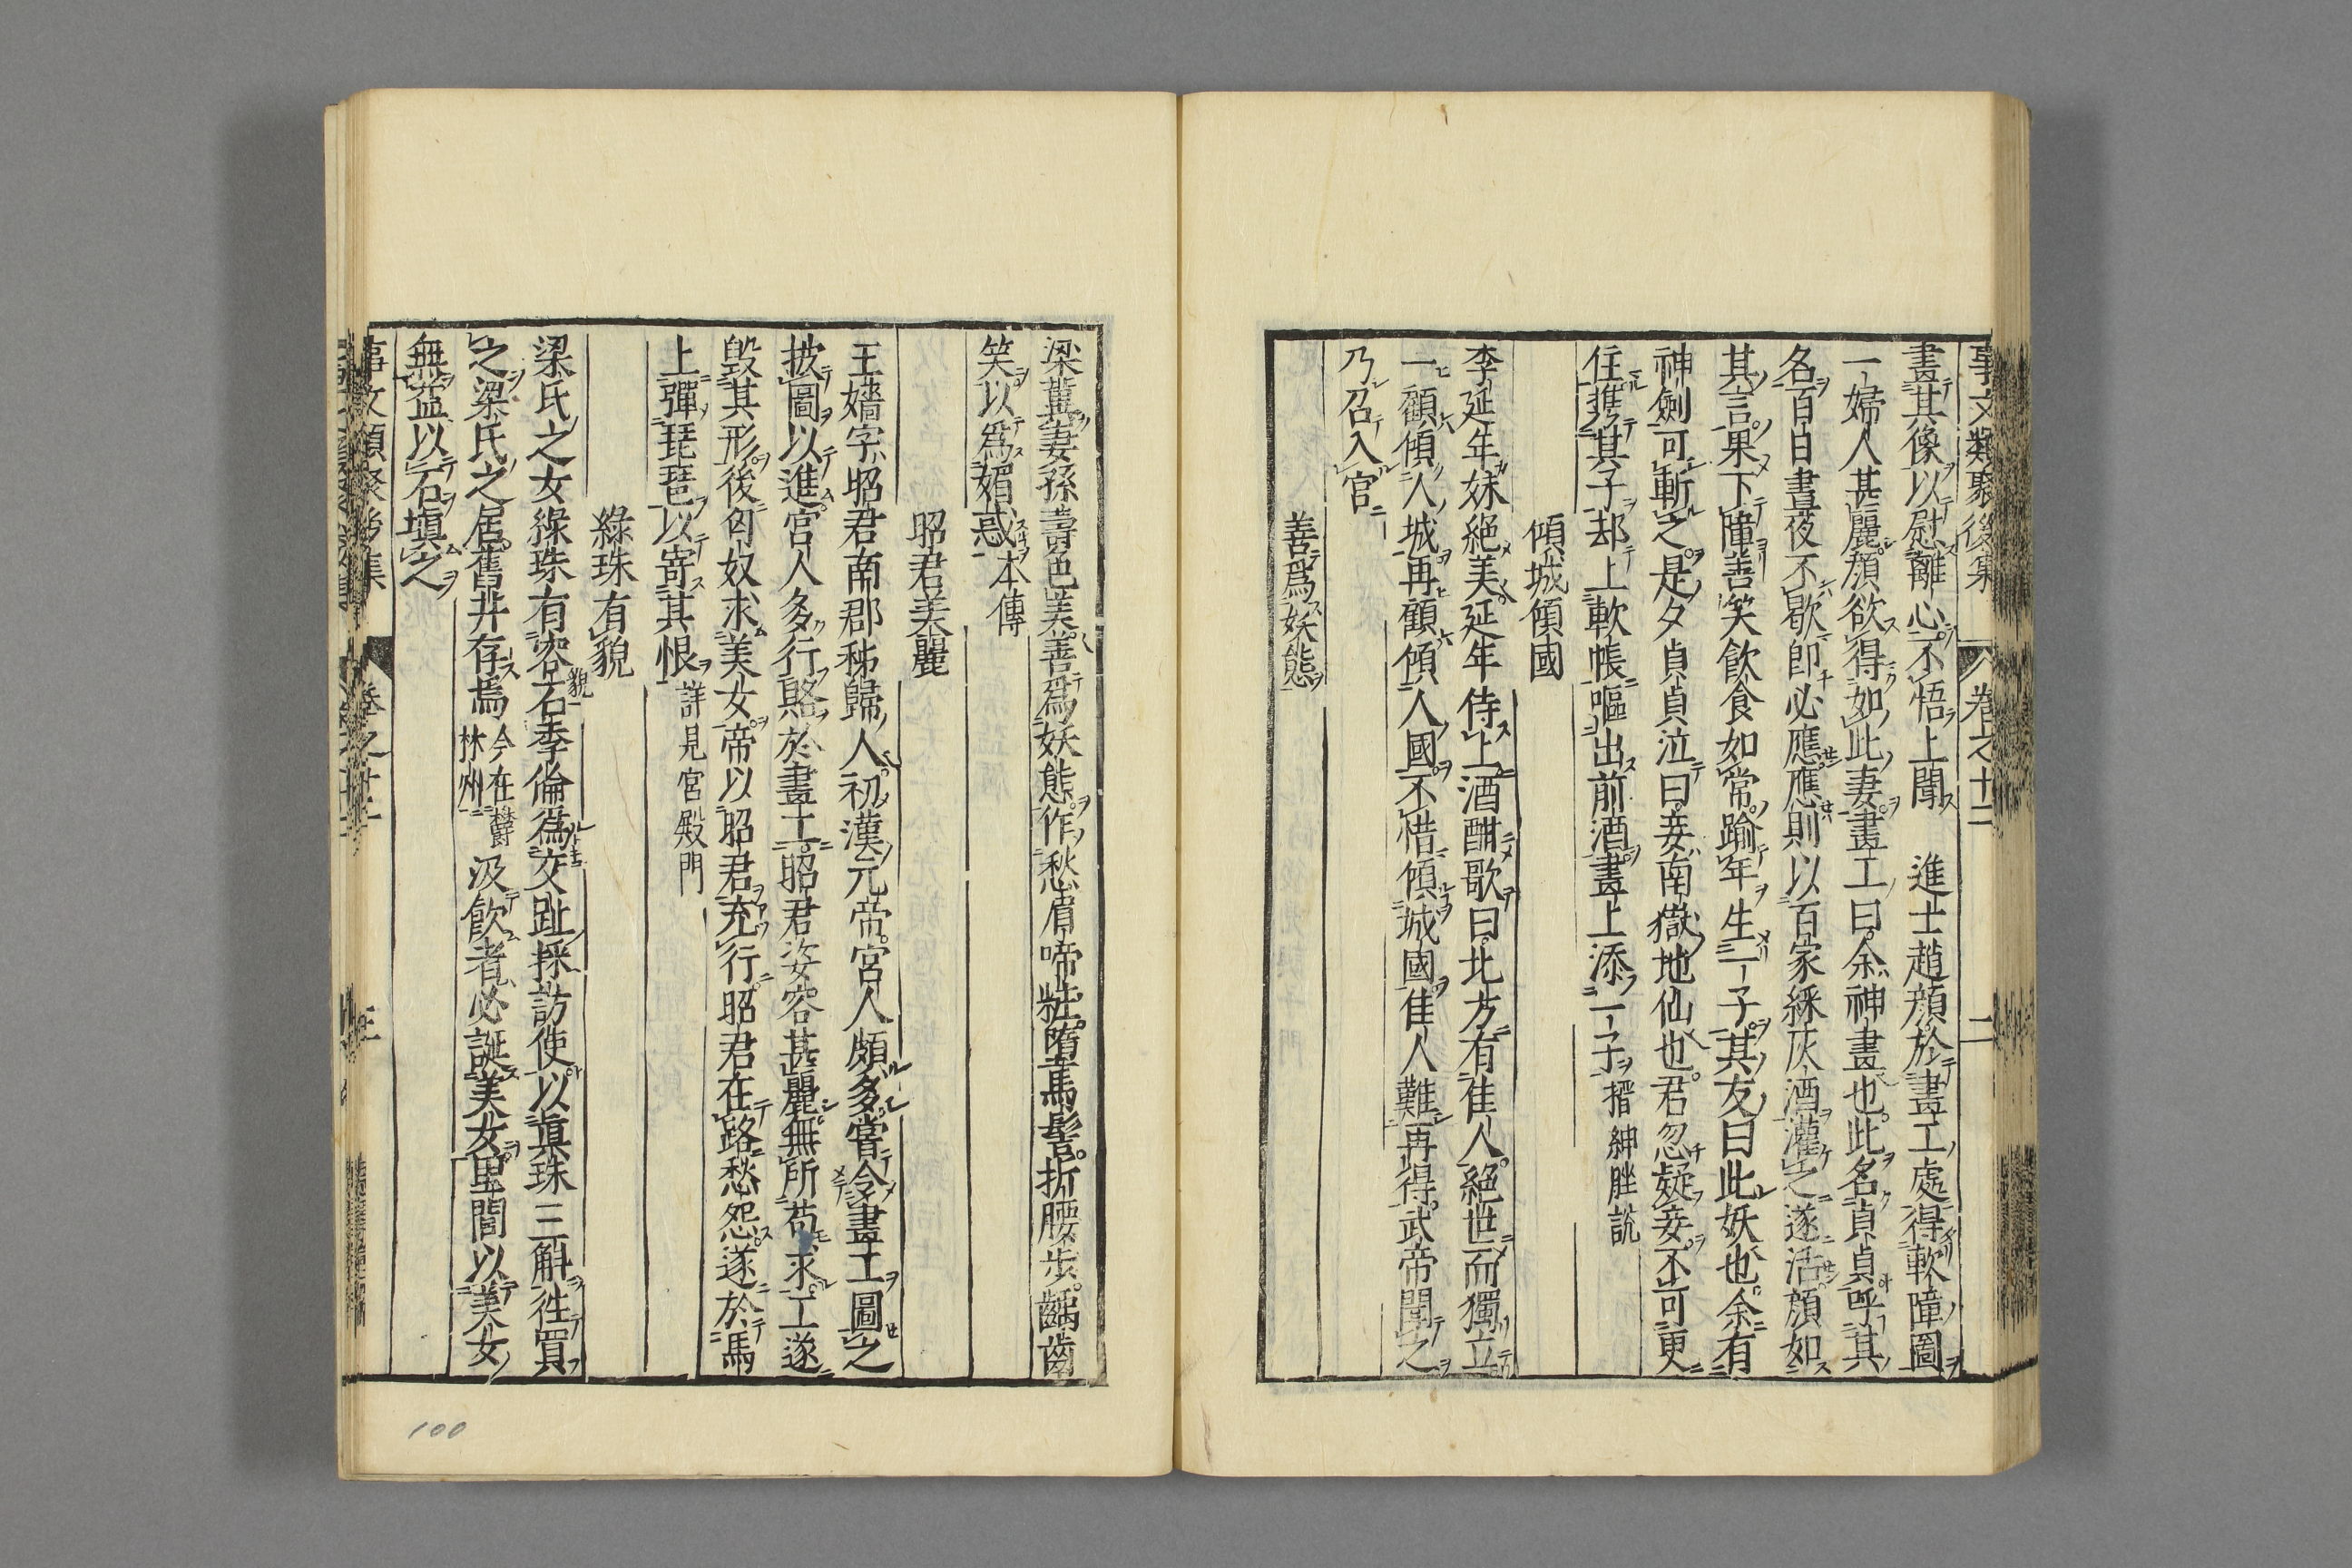 事文類聚後集 卷之十二 二
畫其像以慰離心不悟上聞 進士趙顔於畫工處得軟障圖
一婦人甚麗顔欲得如此妻畫工曰余神畫也此名貞貞呼其
名百日晝夜不歇即必應應則以百家綵灰酒灌之遂活顔如
其言果下障善笑飲食如常踰年生一子其友曰此妖也余有
神劍可斬之是夕貞貞泣曰妾南嶽地仙也君忽疑妾不可更
住携其子却上軟帳嘔出前酒畫上添一子 搢紳脞說
傾城傾國
李延年妹絶美延年侍上酒酣歌曰北方有佳人絶世而獨立
一顧傾人城再顧傾人國不惜傾城國佳人難再得武帝聞之
乃召入官
善爲妖態
梁冀妻孫壽色美善爲妖態作愁眉啼粧墮馬髻折腰步齲齒
笑以爲媚惑 本傳
昭君美麗
王嬙字昭君南郡秭歸人初漢元帝宮人頗多嘗令畫工圖之
披圖以進宮人多行賂於畫工昭君姿容甚麗無所苟求工遂
毀其形後匈奴求美女帝以昭君充行昭君在路愁怨遂於馬
上彈琵琶以寄其恨 詳見宮殿門
綠珠有貌
梁氏之女綠珠有容貌石季倫爲交趾採訪使以眞珠三斛往買
之梁氏之居舊井存焉 今在欝林州 汲飲者必誕美女里閭以美女
無益以石塡之
事文類聚後集 卷之十二 三
100